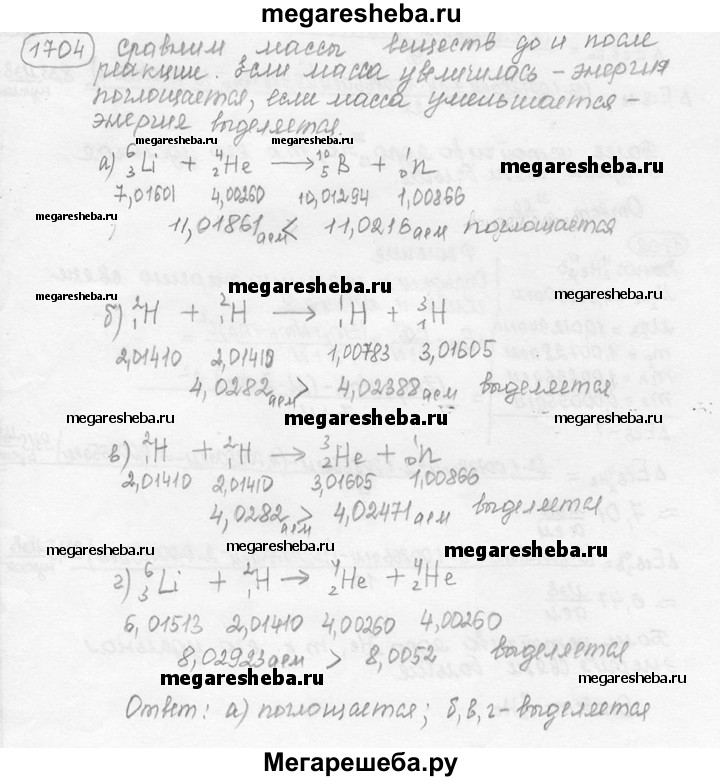 megaresheba.ru
1704 Сравним массы веществ до и после
реакции. Если масса увеличилась – энергия
поглощается, если масса уменьшается –
энергия выделяется.
megaresheba.ru megaresheba.ru
а) ⁶₃Li + ⁴₂He → ¹⁰₅B + ¹₀n
7,01601 4,00260 10,01294 1,00866
megaresheba.ru
11,01861 аем < 11,0216 аем поглощается
megaresheba.ru
megaresheba.ru
б) ²₁H + ²₁H → ¹₁H + ³₁H
2,01410 2,01410 1,00783 3,01605
4,0282 аем > 4,02388 аем выделяется
megaresheba.ru megaresheba.ru
в) ²₁H + ²₁H → ³₂He + ¹₀n
2,01410 2,01410 3,01605 1,00866
4,0282 аем > 4,02471 аем выделяется
megaresheba.ru megaresheba.ru
megaresheba.ru
г) ⁶₃Li + ²₁H → ⁴₂He + ⁴₂He
6,01513 2,01410 4,00260 4,00260
8,02923 аем > 8,0052 выделяется
Ответ: а) поглощается; б, в, г – выделяется
Мегарешеба.ру